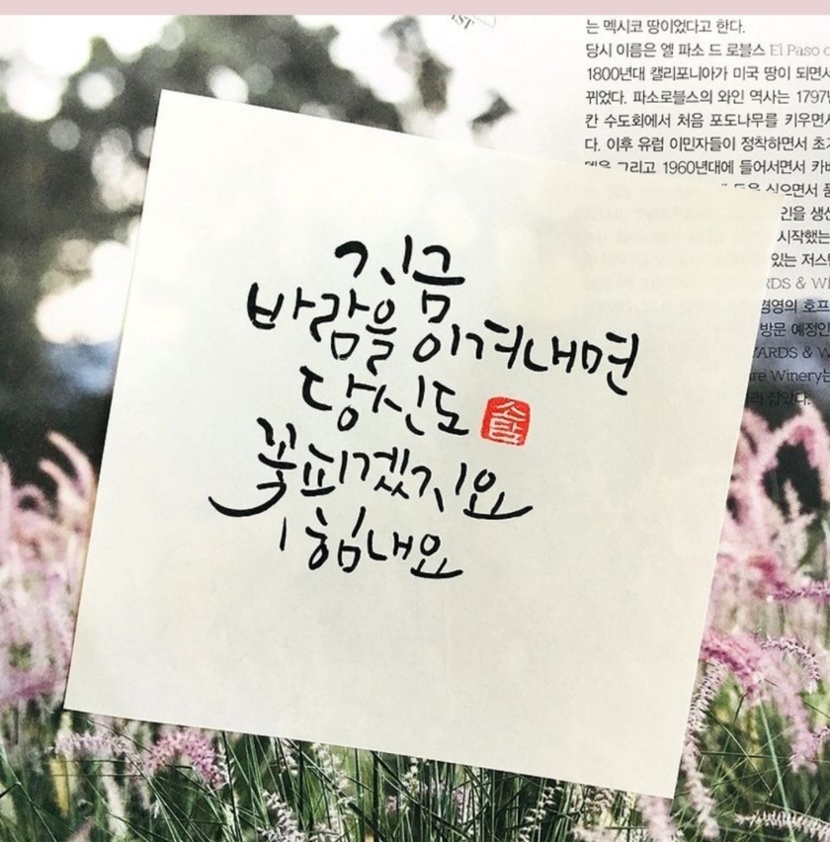 는 멕시코 땅이었다고 한다.
당시 이름은 엘 파소 드 로블스 El Paso
1800년대 캘리포니아가 미국 땅이 되면서
뀌었다. 파소로블스의 와인 역사는 1797년
칸 수도회에서 처음 포도나무를 키우면서
다. 이후 유럽 이민자들이 정착하면서 초기
그리고 1960년대에 들어서면서
심으면서
시작했는
있는
RDS &
경영의 호프
방문 예정인
YARDS &
Winery는
지금
바람을 이겨내면
당신도
꽃피겠지요
힘내요